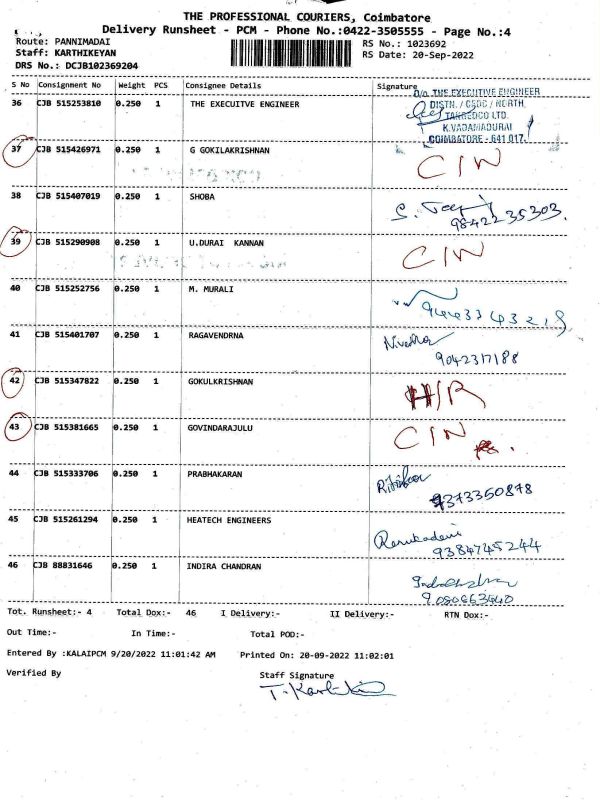 THE PROFESSIONAL COURIERS, Coimbatore
Delivery Runsheet - PCM - Phone No.:0422-3505555 - Page No.:4
Route: PANNIMADAI
RS No.: 1023692
Staff: KARTHIKEYAN
RS Date: 20-Sep-2022
DRS No.: DCJB102369204
S No Consignment No Weight PCS Consignee Details Signature
36 CJB 515253810 0.250 1 THE EXECUITVE ENGINEER
O/o THE EXECUTIVE ENGINEER
DISTN. / CEDC / NORTH
TANGEDCO LTD.
K.VADAMADURAI
COIMBATORE - 641 017.
37 CJB 515426971 0.250 1 G GOKILAKRISHNAN C/N
38 CJB 515407019 0.250 1 SHOBA
9842235303.
39 CJB 515290908 0.250 1 U.DURAI KANNAN C/N
40 CJB 515252756 0.250 1 M. MURALI
41 CJB 515401707 0.250 1 RAGAVENDRNA Nivedha
9042317188
42 CJB 515347822 0.250 1 GOKULKRISHNAN H/R
43 CJB 515381665 0.250 1 GOVINDARAJULU C/N
44 CJB 515333706 0.250 1 PRABHAKARAN
9373350878
45 CJB 515261294 0.250 1 HEATECH ENGINEERS Renukadevi
9384745244
46 CJB 88831646 0.250 1 INDIRA CHANDRAN
9080663440
Tot. Runsheet:- 4 Total Dox:- 46 I Delivery:- II Delivery:- RTN Dox:-
Out Time:- In Time:- Total POD:-
Entered By :KALAIPCM 9/20/2022 11:01:42 AM Printed On: 20-09-2022 11:02:01
Verified By Staff Signature